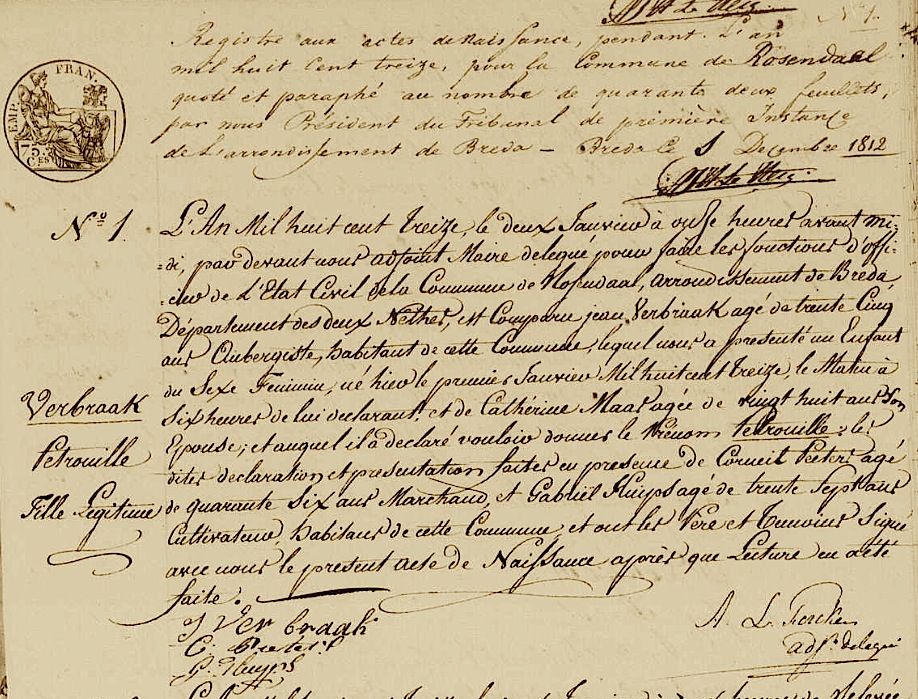 Nº 1.
Registre aux actes de Naissance, pendant L'an
mil huit Cent treize, pour la Commune de Rosendaal
quoté et paraphé au nombre de quarante deux feuillets,
par nous Président du Tribunal de première Instance
de L'arrondissement de Breda – Breda Ce 1 Decembre 1812
EMP. FRAN.
75. CES
Nº 1.
L'An Mil huit cent treize, le deux Janvier à onse heures avant mi-
-di, par devant nous adjoint Maire delegué pour faire les fonctions d'offi-
-cier de L'Etat Civil de la Commune de Rosendaal, arrondissement de Breda
Département des deux Nethes, est Comparu jean Verbraak agé de trente Cinq
ans Aubergiste, habitant de cette Commune, lequel nous a presenté un Enfant
du Sexe Feminin, né hier le premier Janvier Mil huit cent treize, le Matin à
Six heures de lui declarant et de Cathérine Maas agée de vingt huit ans Son
Epouse; et auquel il a declaré vouloir donner le Prénom Petrouille; les
dites declaration et presentation faites en presence de Corneil Peeters agé
de quarante Six ans Marchand, et Gabriel Huyps agé de trente Sept ans
Cultivateur, habitans de cette Commune, et ont les Pere et Temoins Signé
avec nous le present acte de Naissance après que Lecture en a été
faite.
Verbraak
Petrouille
Fille Legitime
J Ver braak
C. Peeters
G. Huyps
A. L.
adjt. delegué